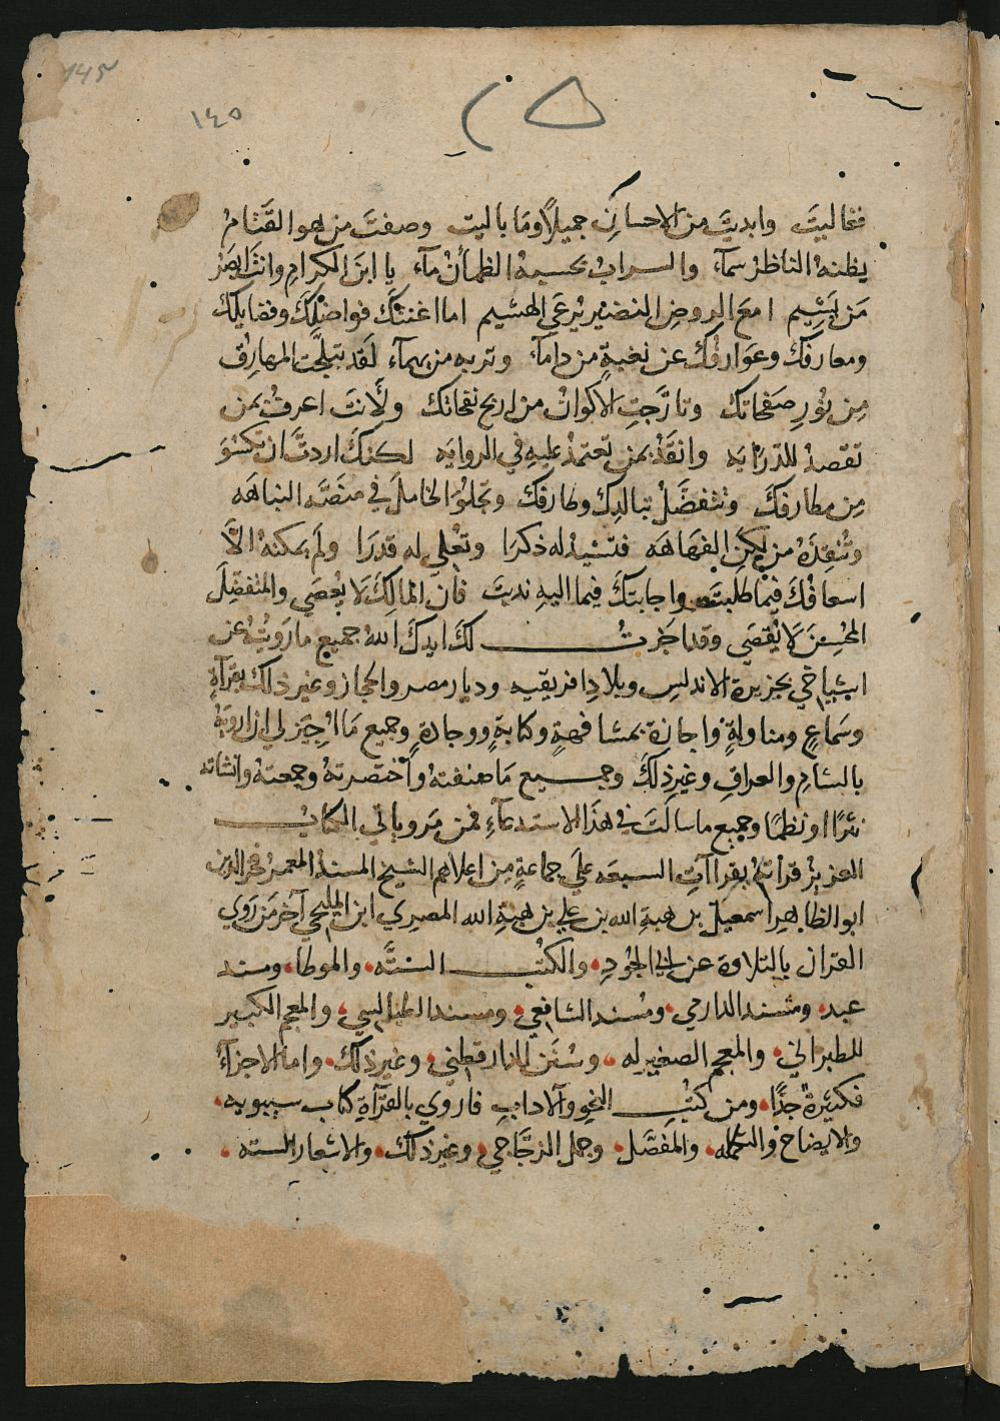 ١٤٥
١٤٥
فغاليتَ وابديتَ من الاحسانِ جميلًا وما باليت وصفتَ من هو القَتَامُ
يظنه الناظرُ سمآء والسرابُ يحسبه الظمأنُ مآء يا ابنَ الكرامِ وانتَ ابصَرُ
مَن يَشيم امعَ الروضِ النضيرِ يُرعَى الهشيم اما اغنتكَ فواضلكَ وفضايلكَ
ومعارفكَ وعَوَارفُكَ عن نغبةٍ من دامآء وتربه من يهمآء لقد تبلّجت المهارقُ
مِن نُورِ صَفحاتكَ وتارّجتِ الاكوانُ من اريج نفحاتكَ ولأَنتَ اعرفُ بمن
تقصدُ للدرايَه وانقَدُ بمن تعتمدُ عليهِ في الروايَه لكنكَ اردتَّ ان تكسُوَ
مِن مطارفكَ وتتفضَّلَ بتالدِك وطارفكَ وتجلوَ الخاملَ في منصَّه النباهَه
وتُنقِذَهُ من لكنِ الفهاهَه فتشيدَ له ذكرَا وتُعلي له قدرَا ولم يمكنه الَّا
اسعافُكَ فيما طلبتَ واجابتكَ فيما اليهِ ندبتَ فان المالكَ لا يُعصَي والمتفضِّلَ
المُحسِنَ لا يُقصَي وقد اجزتُ لكَ ايدكَ اللهُ جميع ما رَويتُ عن
اشياخي بجزيرة الاندلس وبلادِ افريقيه وديار مصر والحجاز وغير ذلك بقرآةٍ
وسَماعٍ ومناولةٍ واجازة بمشافهةٍ وكتابةٍ ووجادةٍ وجميع مَا اُجِيَز لي ان ارويَهُ
بالشامِ والعراقِ وغيرِ ذلكَ وجميع مَا صنفته وآختصرته وجمعته وانشاته
نثرًا او نظمًا وجميع ما سالتَ في هذَا الاستدعآءِ فمن مَروياتي الكتابُ
العزيز قراتُه بقراآتِ السبعَه علي جماعةٍ مِن اعلاهم الشيخ المسندُ المعمرُ فخر الدين
ابو الظاهر اسمعيل بن هبةِ الله بن علي بن هبةِ الله المصري ابن المليجي آخر مَن رَوي
القران بالتلاوة عن ابي الجُودِ والكتُب الستَّه والموطا ومسند
عبد ومسند الدارمي ومُسند الشافعي ومسند الطيالسي والمعجم الكبير
للطبراني والمعجم الصغير له وسُنَن الدارقطني وغير ذلك واما الاجزآءُ
فكثيرةٌ جدًّا ومن كتُبِ النحو والآدابِ فاروي بالقرآة كتاب سيبويه
والايضاح والتكمله والمفصَّل وجمل الزجّاجي وغير ذلكَ والاشعار السته